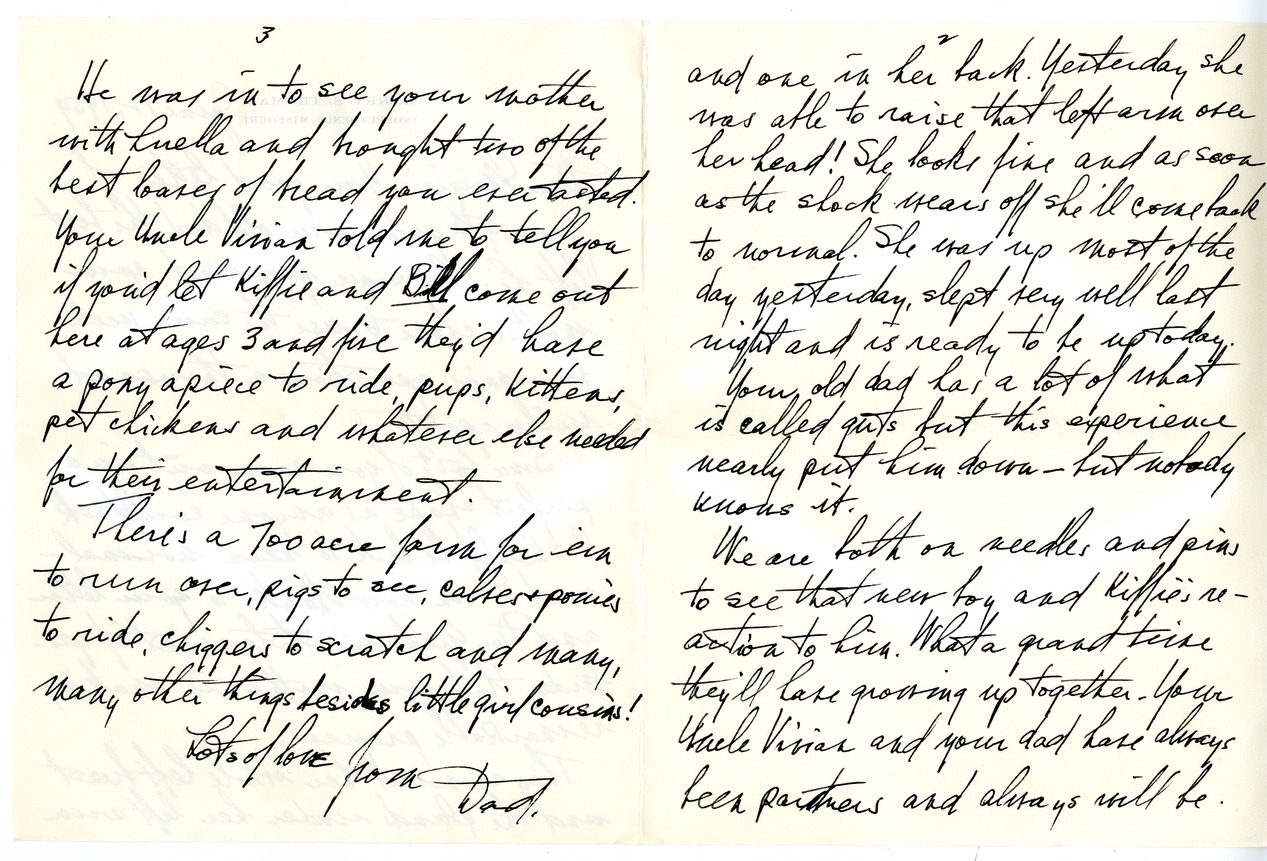 2
and one in her back. Yesterday she
was able to raise that left arm over
her head! She looks fine and as soon
as the shock wears off she'll come back
to normal. She was up most of the
day yesterday, slept very well last
night and is ready to be up today.
Your old dad has a lot of what
is called guts but this experience
nearly put him down – but nobody
knows it.
We are both on needles and pins
to see that new boy and Kiffie's re-
action to him. What a grand time
they'll have growing up together. Your
Uncle Vivian and your dad have always
been partners and always will be.
3
He was in to see your mother
with Luella and brought two of the
best loaves of bread you ever tasted.
Your Uncle Vivian told me to tell you
if you'd let Kiffie and Bill come out
here at ages 3 and five they'd have
a pony apiece to ride, pups, kittens,
pet chickens and whatever else needed
for their entertainment.
There's a 700 acre farm for em
to run over, pigs to see, calves + ponies
to ride, chiggers to scratch and many,
many other things besides little girl cousins!
Lots of love from
Dad.